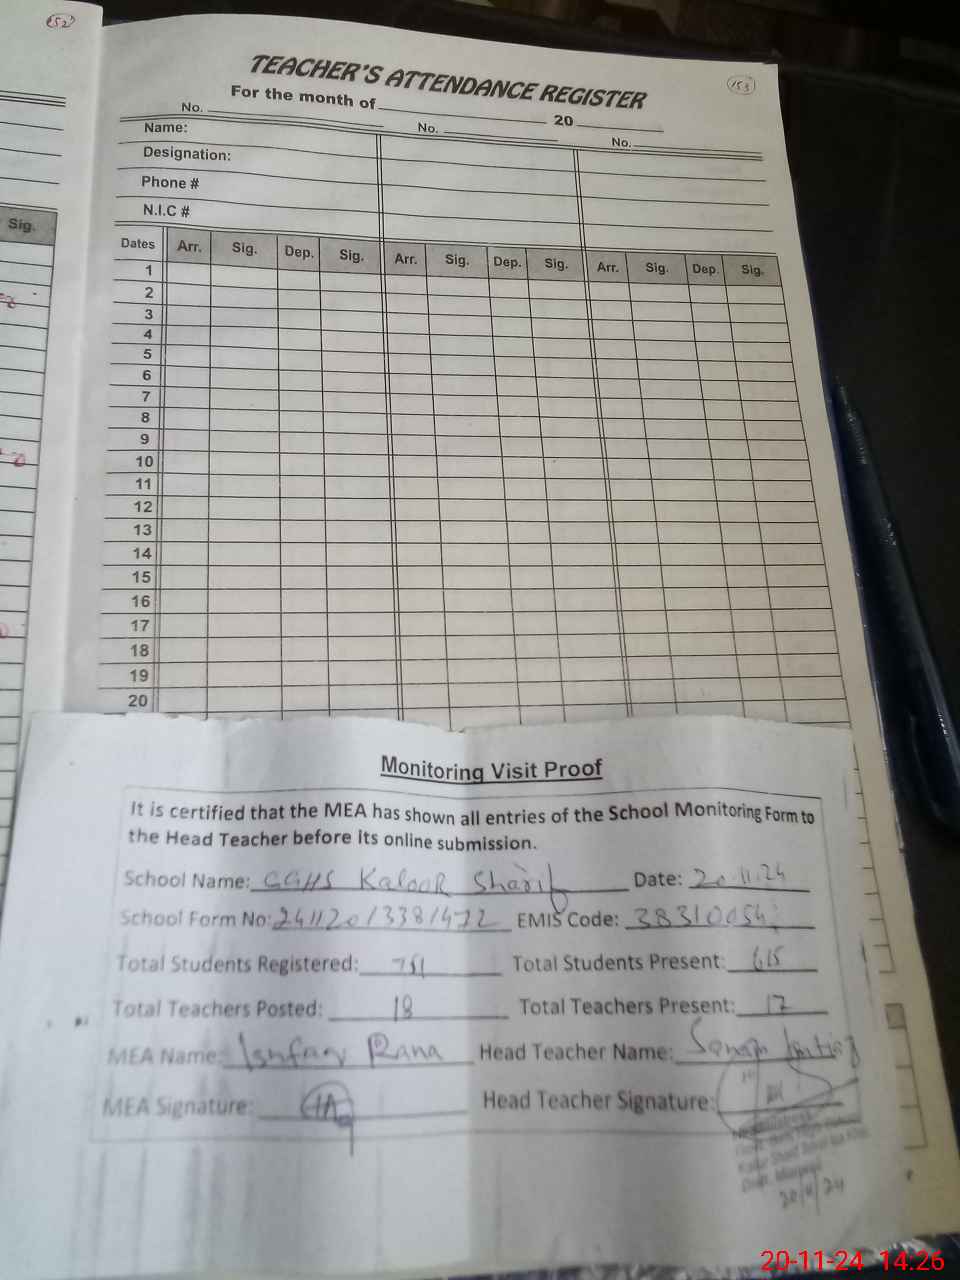 152
153
TEACHER'S ATTENDANCE REGISTER
For the month of 20
No. No. No.
Name:
Designation:
Phone #
N.I.C #
Sig.
Dates Arr. Sig. Dep. Sig. Arr. Sig. Dep. Sig. Arr. Sig. Dep. Sig.
1
2
3
4
5
6
7
8
9
10
11
12
13
14
15
16
17
18
19
20
Monitoring Visit Proof
It is certified that the MEA has shown all entries of the School Monitoring Form to
the Head Teacher before its online submission.
School Name: GGHS Kaloor Sharif Date: 20.11.24
School Form No: 241120/338/472 EMIS Code: 38310054
Total Students Registered: 751 Total Students Present: 615
Total Teachers Posted: 18 Total Teachers Present: 17
MEA Name: Ishfaq Rana Head Teacher Name: Sanam Imtiaz
MEA Signature: Head Teacher Signature:
20/11/24
20-11-24 14:26